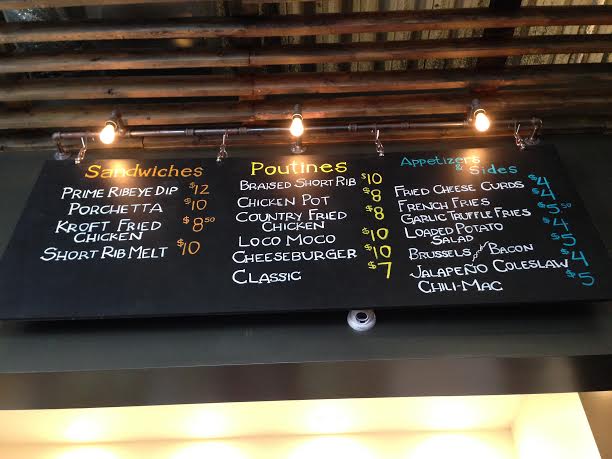 Sandwiches
PRIME RIBEYE DIP $12
PORCHETTA $10
KROFT FRIED CHICKEN $8.50
SHORT RIB MELT $10
Poutines
BRAISED SHORT RIB $10
CHICKEN POT $8
COUNTRY FRIED CHICKEN $8
LOCO MOCO $10
CHEESEBURGER $10
CLASSIC $7
Appetizers & Sides
FRIED CHEESE CURDS $4
FRENCH FRIES $4
GARLIC TRUFFLE FRIES $5.50
LOADED POTATO SALAD $4
BRUSSELS and BACON $5
JALAPEÑO COLESLAW $4
CHILI-MAC $5